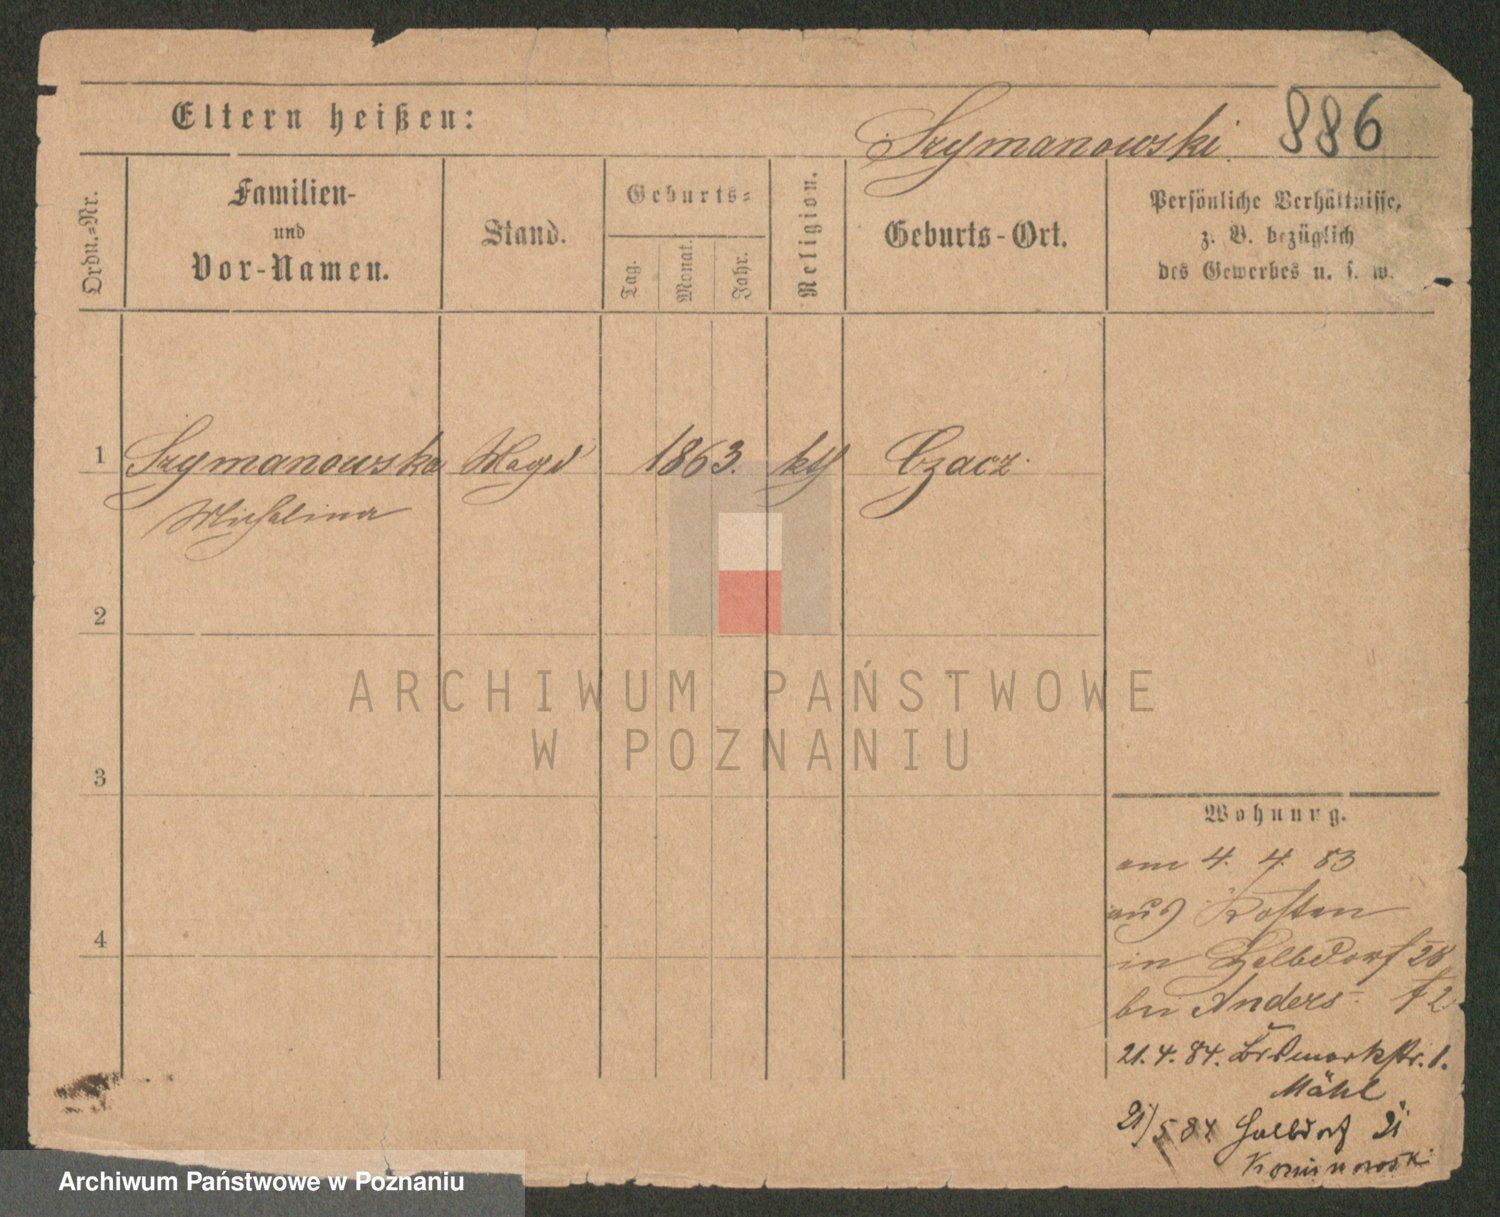 Eltern heißen:
Szymanowski
886
Ordn.-Nr.
Familien-
und
Vor-Namen.
Stand.
Geburts-
Tag.
Monat.
Jahr.
Religion.
Geburts-Ort.
Persönliche Verhältnisse,
z. B. bezüglich
des Gewerbes u. s. w.
1
Szymanowska Magd 1863. kth Czacz
Michalina
2
3
4
ARCHIWUM PAŃSTWOWE
W POZNANIU
Wohnung.
am 4. 4. 83
aus Kosten
in Halbdorf 28
bei Anders
21. 4. 84. Bismarkstr. 1.
Mähl
21/5 84 Halbdorf 21
Archiwum Państwowe w Poznaniu